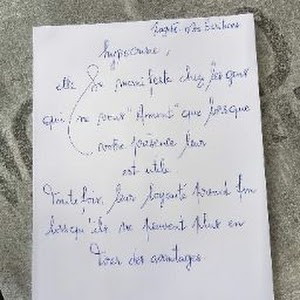 hypocrisie,
elle se manifeste chez les gens
qui ne vous "Aiment" que lorsque
votre présence leur
est utile.
Toute fois, leur loyauté prend fin
lorsqu'ils ne peuvent plus en
tirer des avantages.